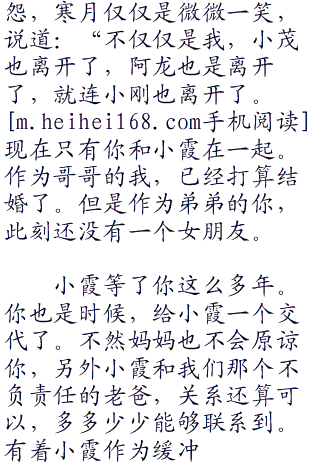 怨，寒月仅仅是微微一笑，
说道：“不仅仅是我，小茂
也离开了，阿龙也是离开
了，就连小刚也离开了。
[m.heihei168.com手机阅读]
现在只有你和小霞在一起。
作为哥哥的我，已经打算结
婚了。但是作为弟弟的你，
此刻还没有一个女朋友。
小霞等了你这么多年。
你也是时候，给小霞一个交
代了。不然妈妈也不会原谅
你，另外小霞和我们那个不
负责任的老爸，关系还算可
以，多多少少能够联系到。
有着小霞作为缓冲